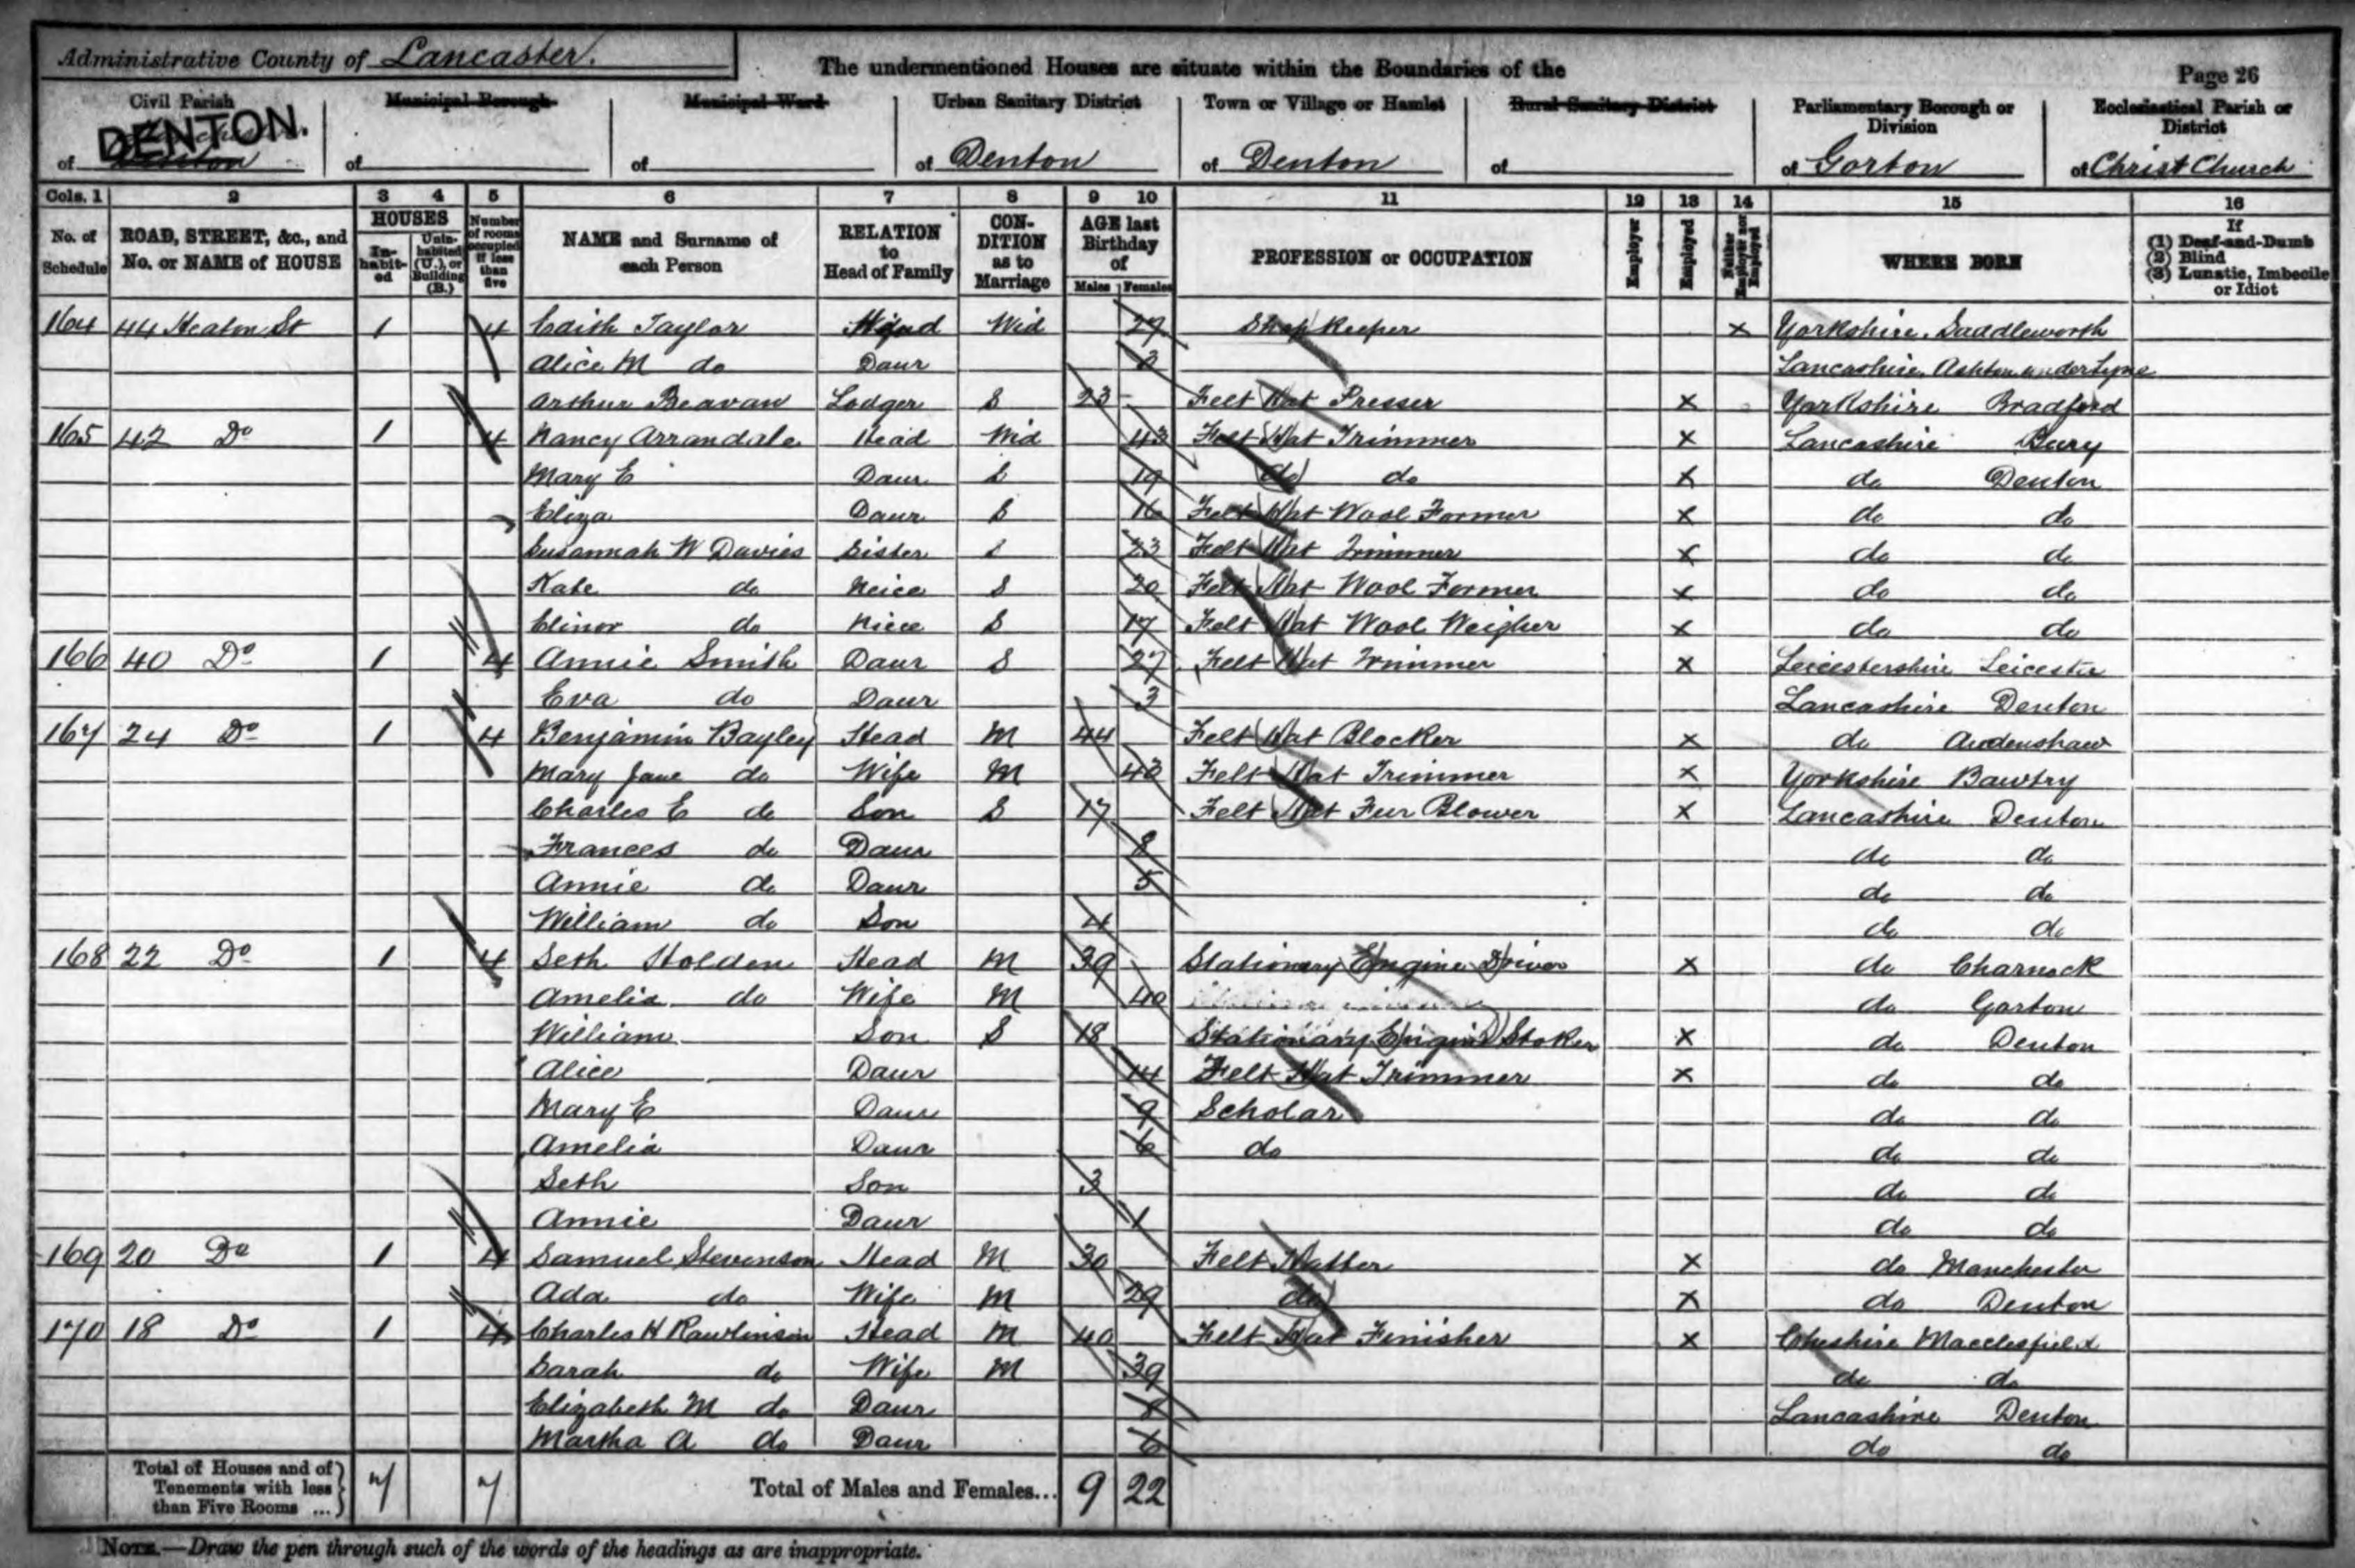 Administrative County of Lancaster. The undermentioned Houses are situate within the Boundaries of the Page 26
Civil Parish Municipal Borough Municipal Ward Urban Sanitary District Town or Village or Hamlet Rural Sanitary District Parliamentary Borough or Division Ecclesiastical Parish or District
DENTON.
of Denton of of of Denton of Denton of of Gorton of Christ Church
Cols. 1 2 3 4 5 6 7 8 9 10 11 12 13 14 15 16
No. of Schedule ROAD, STREET, &c., and No. or NAME of HOUSE HOUSES In-habit-ed Unin-habited (U.), or Building (B.) Number of rooms occupied if less than five NAME and Surname of each Person RELATION to Head of Family CON-DITION as to Marriage AGE last Birthday of Males Females PROFESSION or OCCUPATION Employer Employed Neither Employer nor Employed WHERE BORN If (1) Deaf-and-Dumb (2) Blind (3) Lunatic, Imbecile or Idiot
164 44 Heaton St 1 4 Edith Taylor Head Wid 29 Shop Keeper x Yorkshire, Saddleworth
Alice M do Daur 3 Lancashire, Ashton under Lyne
Arthur Beavan Lodger S 23 Felt Hat Presser x Yorkshire Bradford
165 42 Do 1 4 Nancy Arrandale Head Wid 43 Felt Hat Trimmer x Lancashire Bury
Mary E Daur S 19 do do x do Denton
Eliza Daur S 16 Felt Hat Wool Former x do do
Susannah W Davies Sister S 23 Felt Hat Trimmer x do do
Kate do Neice S 20 Felt Hat Wool Former x do do
Elinor do Niece S 17 Felt Hat Wool Weigher x do do
166 40 Do 1 4 Annie Smith Daur S 27 Felt Hat Trimmer x Leicestershire Leicester
Eva do Daur 3 Lancashire Denton
167 24 Do 1 4 Benjamin Bayley Head M 44 Felt Hat Blocker x do Audenshaw
Mary Jane do Wife M 43 Felt Hat Trimmer x Yorkshire Bawtry
Charles E do Son S 17 Felt Hat Fur Blower x Lancashire Denton
Frances do Daur 8 do do
Annie do Daur 5 do do
William do Son 4 do do
168 22 Do 1 4 Seth Holden Head M 39 Stationary Engine Driver x do Charnock
Amelia do Wife M 40 do Gorton
William Son S 18 Stationary Engine Stoker x do Denton
Alice Daur 14 Felt Hat Trimmer x do do
Mary E Daur 9 Scholar do do
Amelia Daur 6 do do do
Seth Son 3 do do
Annie Daur 1 do do
169 20 Do 1 4 Samuel Stevenson Head M 30 Felt Hatter x do Manchester
Ada do Wife M 29 do x do Denton
170 18 Do 1 4 Charles H Rawlinson Head M 40 Felt Hat Finisher x Cheshire Macclesfield
Sarah do Wife M 39 do do
Elizabeth M do Daur 8 Lancashire Denton
Martha A do Daur 6 do do
Total of Houses and of Tenements with less than Five Rooms ... 7 7 Total of Males and Females... 9 22
NOTE.—Draw the pen through such of the words of the headings as are inappropriate.